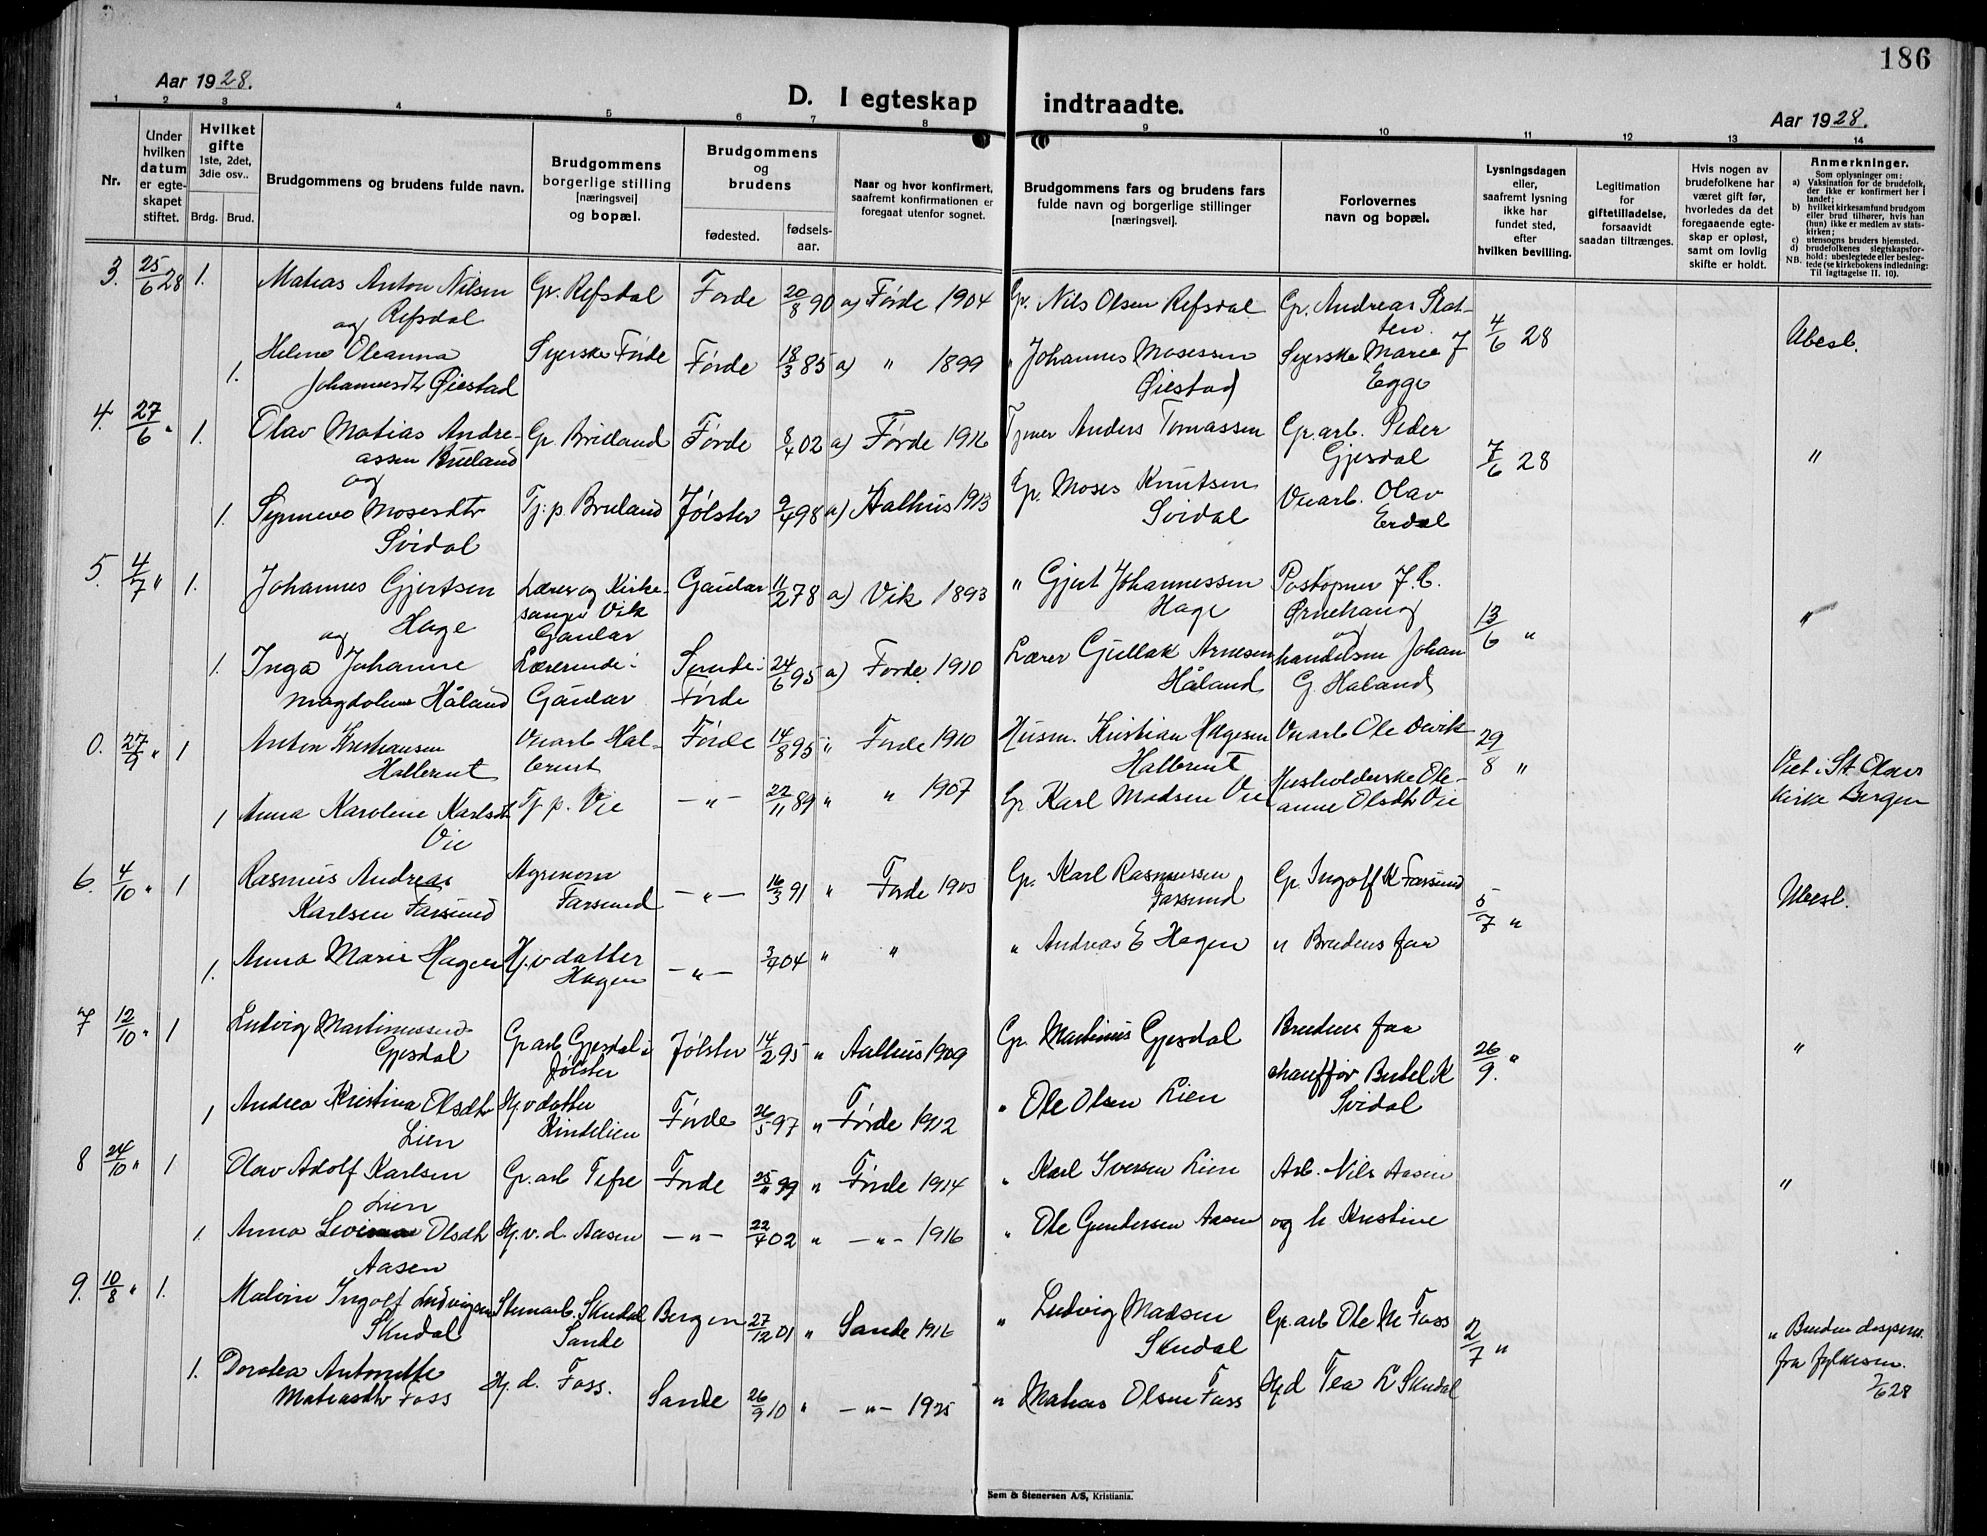 186
Aar 1928.
D. I egteskap indtraadte.
Aar 1928.
1 2 3 4 5 6 7 8 9 10 11 12 13 14
Nr.
Under hvilken datum er egteskapet stiftet.
Hvilket gifte 1ste, 2det, 3die osv..
Brdg. Brud.
Brudgommens og brudens fulde navn.
Brudgommens borgerlige stilling [næringsvei] og bopæl.
Brudgommens og brudens
fødested. fødselsaar.
Naar og hvor konfirmert, saafremt konfirmationen er foregaat utenfor sognet.
Brudgommens fars og brudens fars fulde navn og borgerlige stillinger [næringsvei].
Forlovernes navn og bopæl.
Lysningsdagen eller, saafremt lysning ikke har fundet sted, efter hvilken bevilling.
Legitimation for giftetilladelse, forsaavidt saadan tiltrænges.
Hvis nogen av brudefolkene har været gift før, hvorledes da det foregaaende egteskap er opløst, samt om lovlig skifte er holdt.
Anmerkninger.
Som oplysninger om:
a) Vaksination for de brudefolk, der ikke er konfirmert her i landet;
b) hvilket kirkesamfund brudgom eller brud tilhører, hvis han (hun) ikke er medlem av statskirken;
c) utensogns bruders hjemsted.
d) brudefolkenes slegtskapsforhold: ubeslegtede eller beslegtede (se kirkebokens indledning: Til iagttagelse II. 10).
NB.
3. 25/6 28 1. Matias Anton Nilsen Refsdal Gr. Refsdal Førde 20/8 90 a) Førde 1904 Gr. Nils Olsen Refsdal Gr. Andreas Slatten. 4/6 28 Ubesl.
og
1. Helene Oleanna Johannesdtr Øiestad Syerske Førde Førde 18/3 85 a) " 1899 " Johannes Mosessen Øiestad Syerske Marie J Egge
4. 27/6 " 1. Olav Matias Andreassen Bruland Gr. Bruland Førde 8/4 02 a) Førde 1916 Anders Tomassen Gr. arb. Peder Gjesdal 7/6 28 "
og
1. Synneve Mosesdtr Svidal Tj. p. Bruland Jølster 9/4 98 a) Aalhus 1913 Gr. Moses Knutsen Svidal Vearb. Olav Erdal
5. 4/7 " 1. Johannes Gjertsen Hage Lærer og Kirkesanger Vik Gaular Gaular 11/2 78 a) Vik 1893 " Gjert Johannessen Hage Postopner J. C. Ørnehaug 13/6 " "
og og
1. Inga Johanne Magdalene Håland Lærerinde i Gaular Sunde i Førde 24/6 95 a) Førde 1910 Lærer Gullak Arnesen Håland handelsm Johan G. Haland
0. 27/9 " 1 Anton Kristiansen Halbrent Vearb Halbrent Førde 14/8 95 " Førde 1910 Husm. Kristian Halbrent Vearb Ole 29/8 " Viet i St. Olavs Kirke Bergen
1 Anna Karoline Karlsdtr Vie Tj. p. Vie — " — 22/11 89 " " 1907 Gr. Karl Madsen Vie Husholderske Oleanne Olsdtr Vie
6. 4/10 " 1 Rasmus Andreas Karlsen Farsund Agronom Farsund — " — 16/3 91 " Førde 1905 Gr. Karl Rasmussen Farsund Gr. Ingolf K Farsund 5/7 " Ubesl.
1. Anna Marie Hagen Hj. v datter Hagen — " — 3/4 04 " " " Andreas E Hagen " Brudens far
7 12/10 " 1 Ludvig Martinussen Gjesdal Gr arb Gjesdal i Jølster Jølster 14/2 95 " Aalhus 1909 Gr. Martinus Gjesdal Brudens far 26/9. " "
1 Andrea Kristina Olsdtr Lien Hj. v datter Kindelien Førde 26/5 97 " Førde 1912 " Ole Olsen Lien chauffør Bertel K Svidal
8 24/10 " 1 Olav Adolf Karlsen Lien Gr. arb Tefre Førde 25/11 99 " Førde 1914 " Karl Iversen Lien Arb. Nils Aasen "
1. Anna Olsdtr Aasen Hj. v. d. Aasen — " — 22/4 02 " — " — 1916 " Ole Gundersen Aasen og h. Kristine
9. 10/8 " 1. Malvin Ingolf Ludvigsen Skudal Stenarb. Skudal Sande Bergen 27/12 01 " Sande 1916 " Ludvig Madsen Skudal Gr. arb Ole M Foss 2/7 " " Bruden dispens. fra fylkesm. 7/6 28
1. Dorotea Antonette Matiasdtr Foss Hj. d. Foss. Sande 26/9 10 " — " — 1925 " Matias Olsen Foss Hj d Tea L Skudal
Sem & Stenersen A/S, Kristiania.